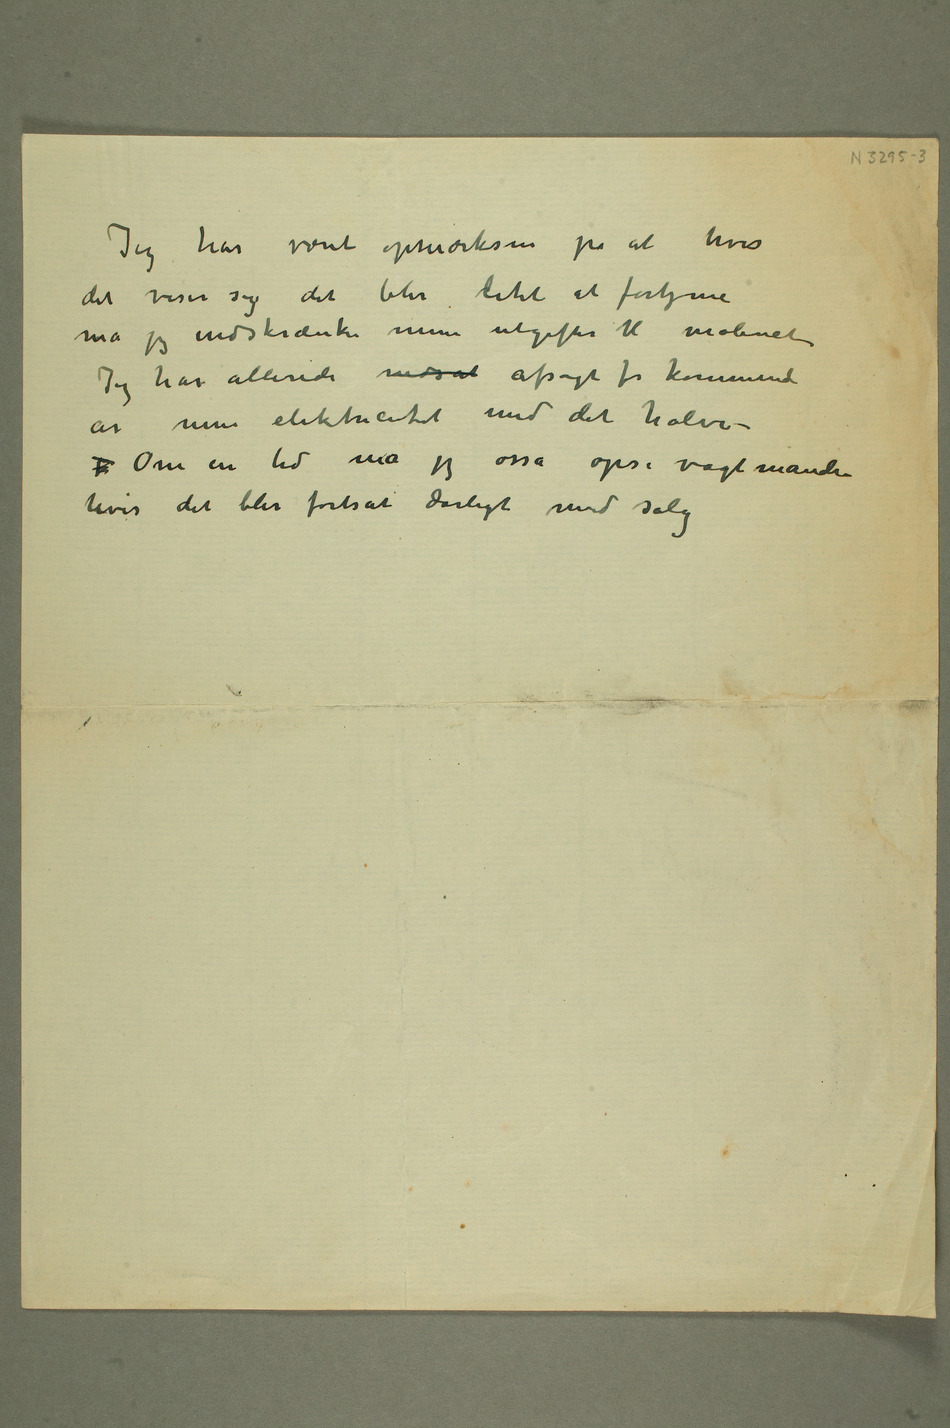 N 3295-3
Jeg har været opmærksom på at hvis
det viser sig det blir litet at fortjene
må jeg indskrænke mine utgifter til malenet
Jeg har allerede nedsat afsagt for kommende
år min elektricitet med det halve –
Om en tid må jeg osså opsi vagtmanden
hvis det blir fortsat dårligt med salg